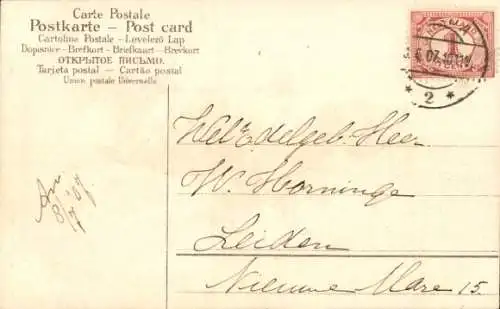 Carte Postale
Postkarte — Post card
Cartolina Postale — Levelező Lap
Dopisnice — Brefkort — Briefkaart — Brevkort
ОТКРЫТОЕ ПИСЬМО.
Tarjeta postal — Cartão postal
Union postale Universelle
WelEdelgeb. Heer
W. Horninge
Leiden
Nieuwe Mare 15.
07
* 2 *